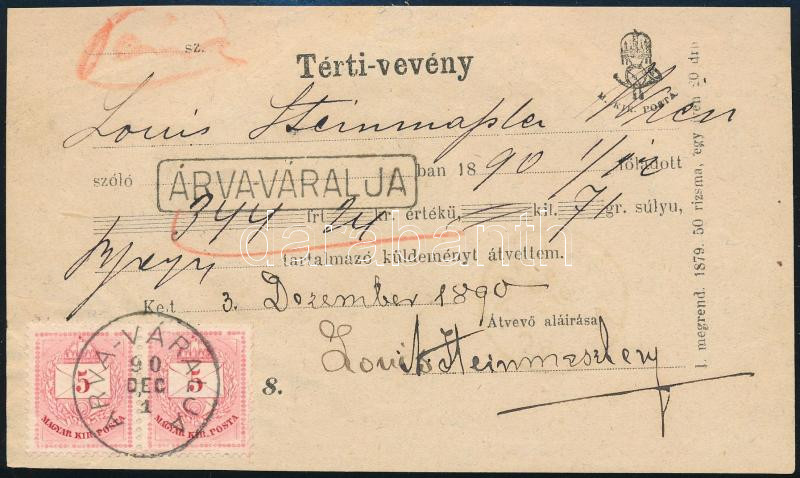 sz.
Térti-vevény
M. KIR. POSTA.
Louis Wien
szóló ÁRVA-VÁRALJA ban 1890 1/12 föladott
344 frt 24 kr. értékü, kil. 7 gr. súlyu,
tartalmazó küldeményt átvettem.
Ke.t 3. Dezember 1890
Átvevő aláirása
Louis
8.
ÁRVA-VÁRALJA
90
DEC
1
5 5
MAGYAR KIR. POSTA MAGYAR KIR. POSTA
1. megrend. 1879. 50 rizsma, egy
darabanth